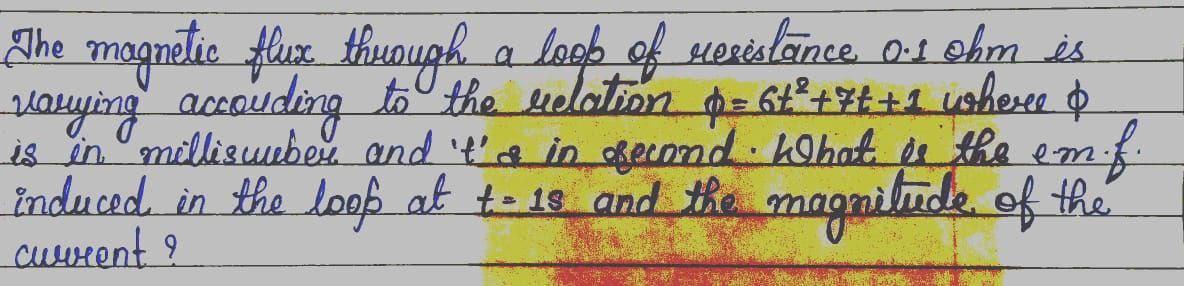 The magnetic flux through a loop of resistance 0.1 ohm is
varying according to the relation φ = 6t² + 7t + 1 where φ
is in milliweber and 't' is in second. What is the e.m.f.
induced in the loop at t = 1s and the magnitude of the
current ?